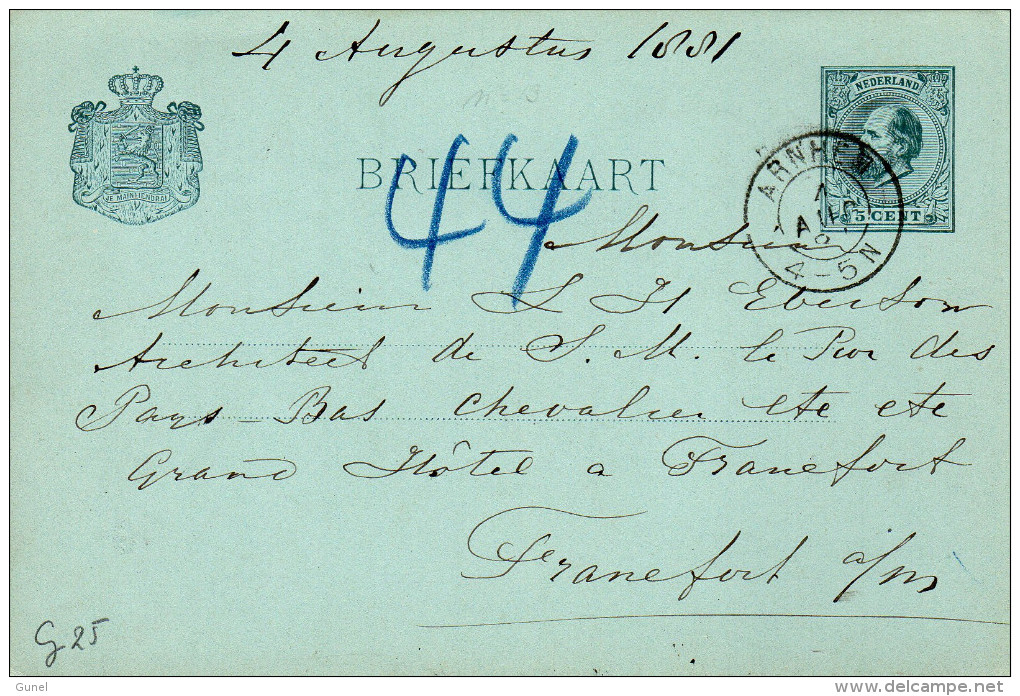 4 Augustus 1881
NEDERLAND
5 CENT
JE MAINTIENDRAI
BRIEFKAART
44
ARNHEM
AUG
4-5N
Monsieur
Monsieur L H Eberson
Architect de S. M. le Roi des
Pays-Bas Chevalier etc etc
Grand Hôtel a Francfort
Francfort a/m
G 25
Gunel
delcampe.net